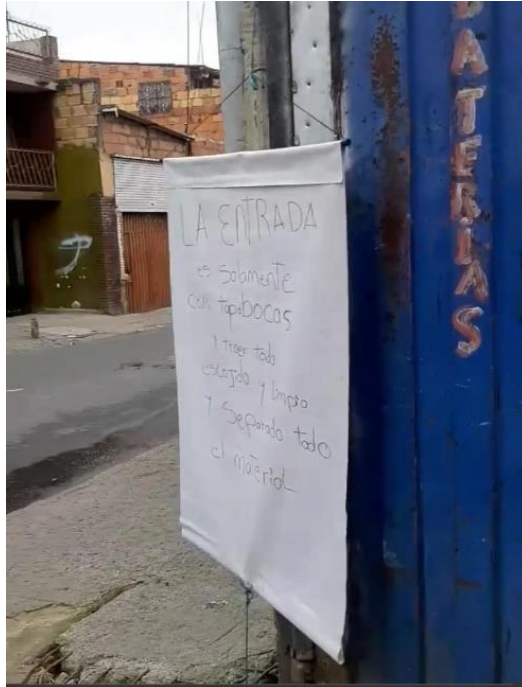 LA ENTRADA
es solamente
con tapaBOCAS
y traer todo
escojido y limpio
y separado todo
el material
BATERIAS